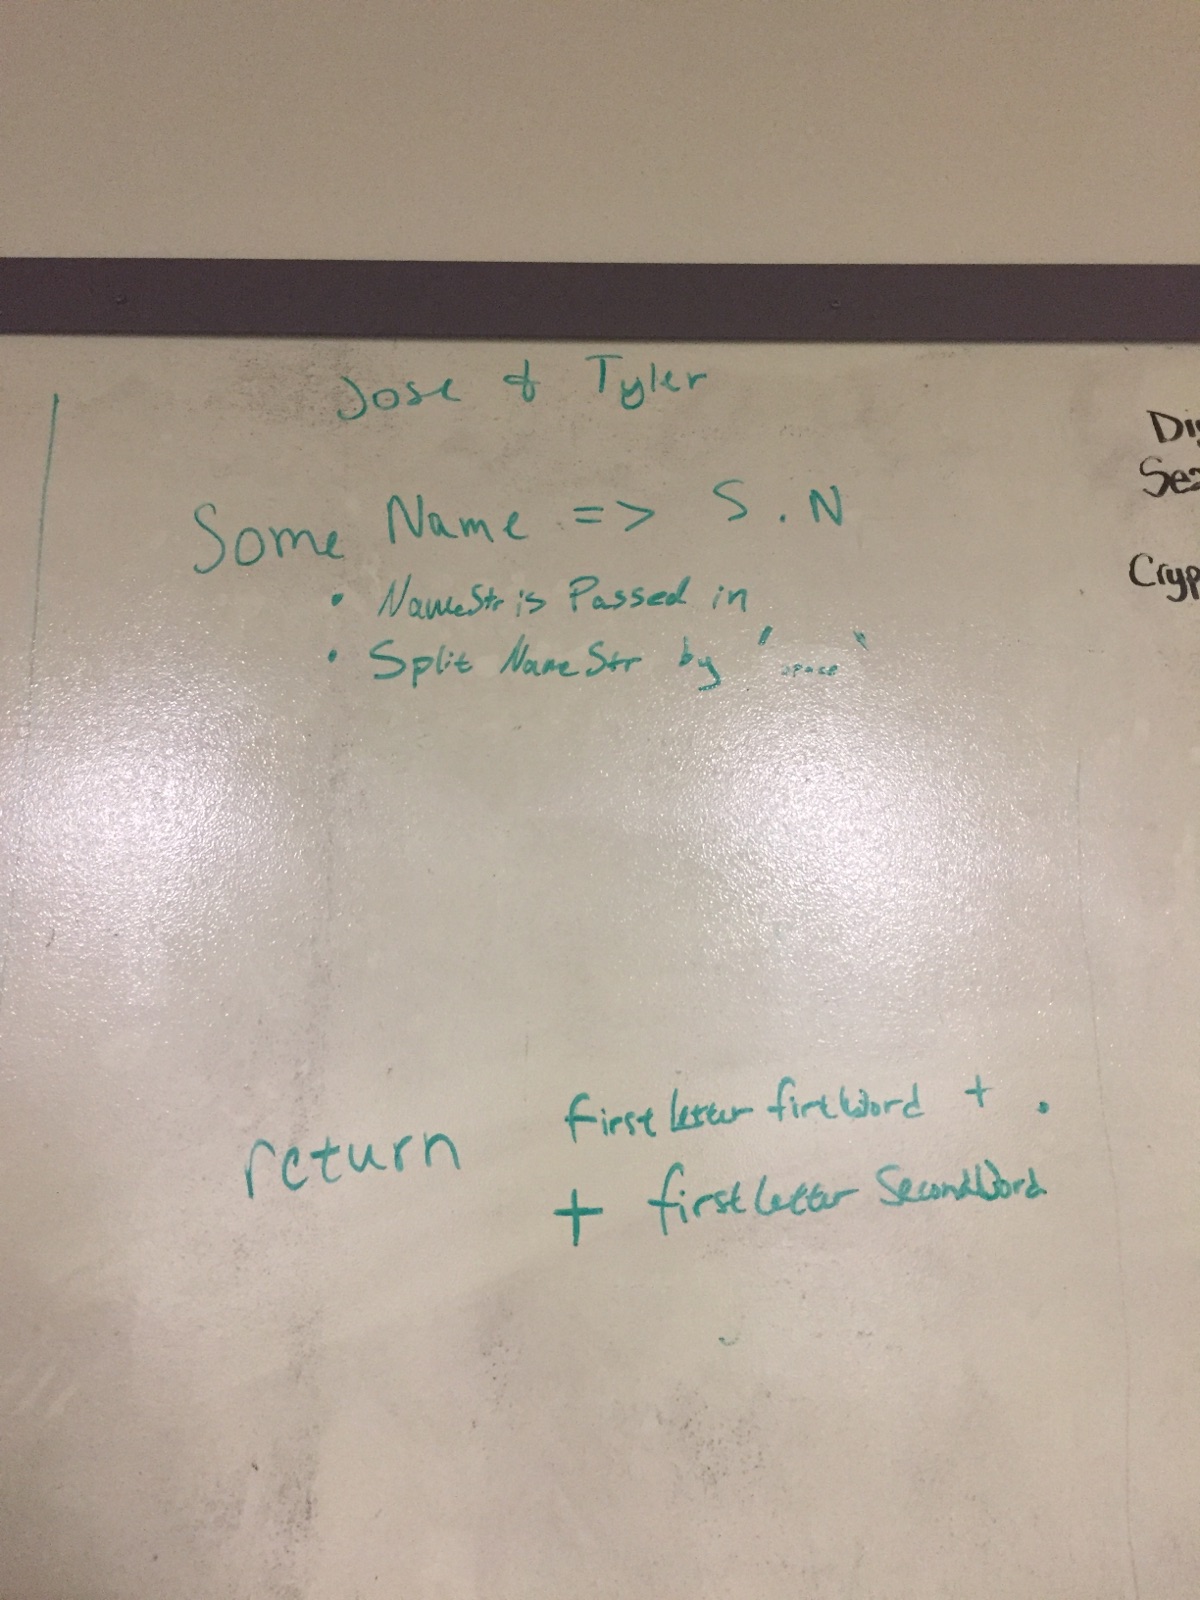 Jose & Tyler
Some Name => S.N
• NameStr is Passed in
• Split NameStr by 'space'
return firstletter firtWord + .
+ firstletter SecondWord
Dig
Sez
Cryp